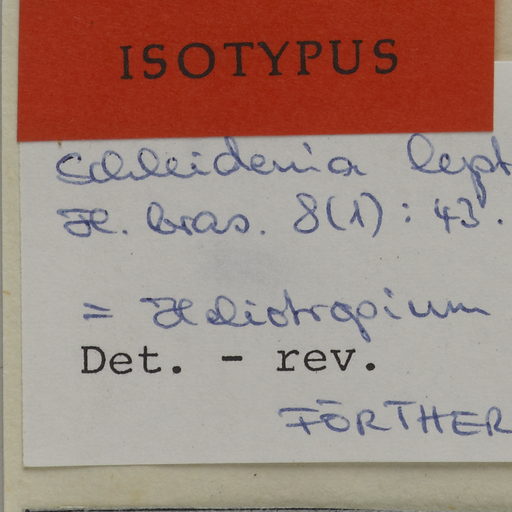 ISOTYPUS
Schleidenia lept
Fl. bras. 8(1): 43.
= Heliotropium
Det. - rev.
FÖRTHER